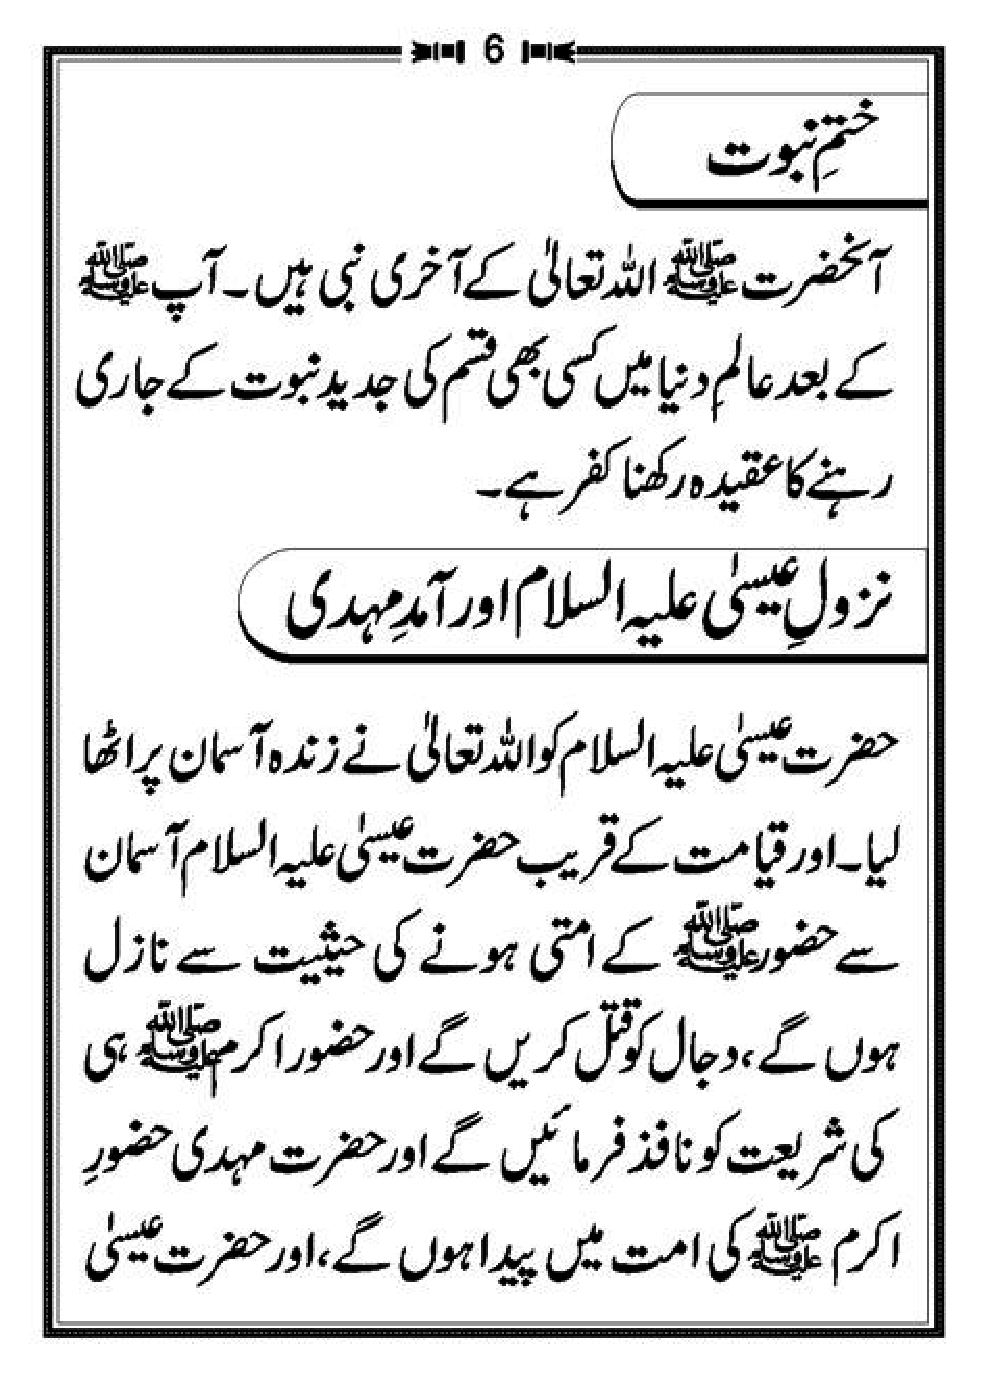 6
ختمِ نبوت
آنحضرت ﷺ اللہ تعالیٰ کے آخری نبی ہیں۔ آپ ﷺ
کے بعد عالمِ دنیا میں کسی بھی قسم کی جدید نبوت کے جاری
رہنے کا عقیدہ رکھنا کفر ہے۔
نزولِ عیسیٰ علیہ السلام اور آمدِ مہدی
حضرت عیسیٰ علیہ السلام کو اللہ تعالیٰ نے زندہ آسمان پر اٹھا
لیا۔ اور قیامت کے قریب حضرت عیسیٰ علیہ السلام آسمان
سے حضور ﷺ کے امتی ہونے کی حیثیت سے نازل
ہوں گے، دجال کو قتل کریں گے اور حضور اکرم ﷺ ہی
کی شریعت کو نافذ فرمائیں گے اور حضرت مہدی حضورِ
اکرم ﷺ کی امت میں پیدا ہوں گے، اور حضرت عیسیٰ